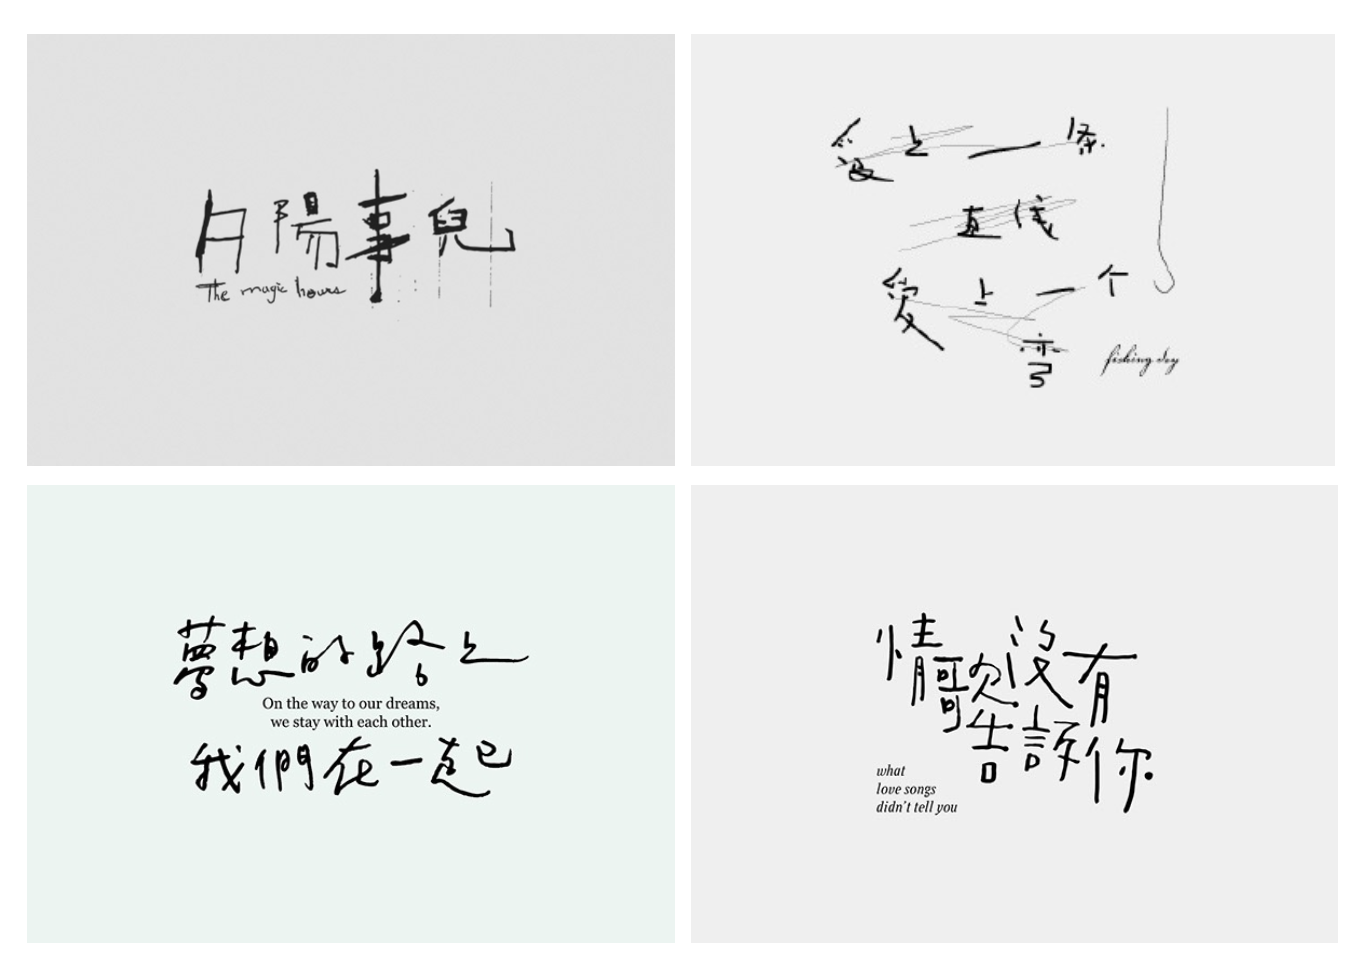 夕陽事兒
The magic hours
爱上一条
直线
爱上一个
弯
fishing day
夢想的路上
On the way to our dreams,
we stay with each other.
我們在一起
情歌沒有
告訴你
what
love songs
didn't tell you